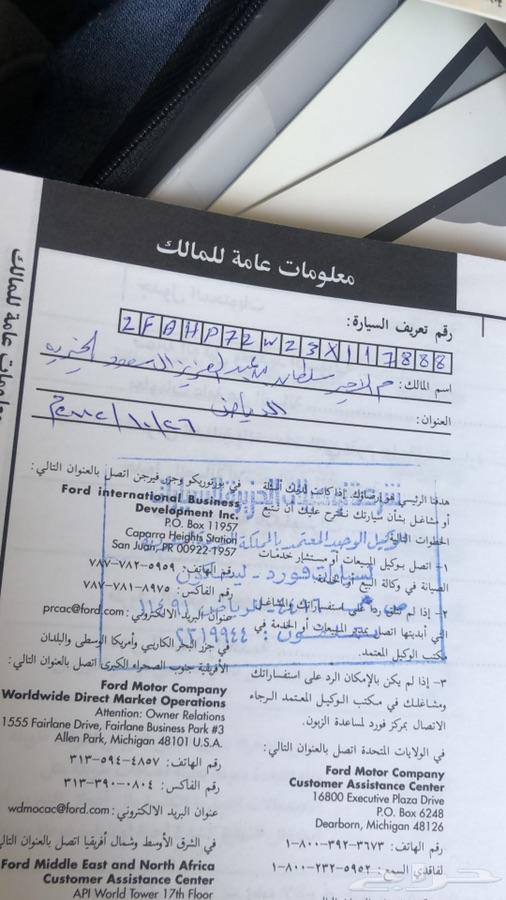 معلومات عامة للمالك
معلومات عامة للمالك
رقم تعريف السيارة:
2FAHP72W23X117888
اسم المالك: الامير سلطان بن عبد العزيز السعود
العنوان: الرياض
هدفنا الرئيسي هو إرضائك. إذا كانت لديك أسئلة
أو مشاغل بشأن سيارتك نقترح عليك أن تتبع
الخطوات التالية:
١– اتصل بوكيل المبيعات أو مستشار خدمات
الصيانة في وكالة البيع أو الخدمة.
٢– إذا لم تتلق رداً على استفساراتك والمشاغل
التي أبديتها اتصل بمدير المبيعات أو الخدمة في
مكتب الوكيل المعتمد.
٣– إذا لم يكن بالإمكان الرد على استفساراتك
ومشاغلك في مكتب الوكيل المعتمد الرجاء
الاتصال بمركز فورد لمساعدة الزبون.
في الولايات المتحدة اتصل بالعنوان التالي:
Ford Motor Company
Customer Assistance Center
16800 Executive Plaza Drive
P.O. Box 6248
Dearborn, Michigan 48126
رقم الهاتف: ٣٦٧٣–٣٩٢–٨٠٠–١
لفاقدي السمع: ٥٩٥٢–٢٣٢–٨٠٠–١
في بورتوريكو وجزر فيرجن اتصل بالعنوان التالي:
Ford international Business
Development Inc.
P.O. Box 11957
Caparra Heights Station
San Juan, PR 00922-1957
رقم الهاتف: ٥٩٥٩–٧٨٢–٧٨٧
رقم الفاكس: ٨٩٧٥–٧٨١–٧٨٧
عنوان البريد الالكتروني: prcac@ford.com
في جزر البحر الكاريبي وأمريكا الوسطى والبلدان
الأفريقية جنوب الصحراء الكبرى اتصل بالعنوان التالي:
Ford Motor Company
Worldwide Direct Market Operations
Attention: Owner Relations
1555 Fairlane Drive, Fairlane Business Park #3
Allen Park, Michigan 48101 U.S.A.
رقم الهاتف: ٤٨٥٧–٥٩٤–٣١٣
رقم الفاكس: ٠٨٠٤–٣٩٠–٣١٣
عنوان البريد الالكتروني: wdmocac@ford.com
في الشرق الأوسط وشمال أفريقيا اتصل بالعنوان التالي
Ford Middle East and North Africa
Customer Assistance Center
API World Tower 17th Floor
الوكيل الوحيد المعتمد بالمملكة
لسيارات فورد - لينكولن
الرياض ١١٤٩١
حراج